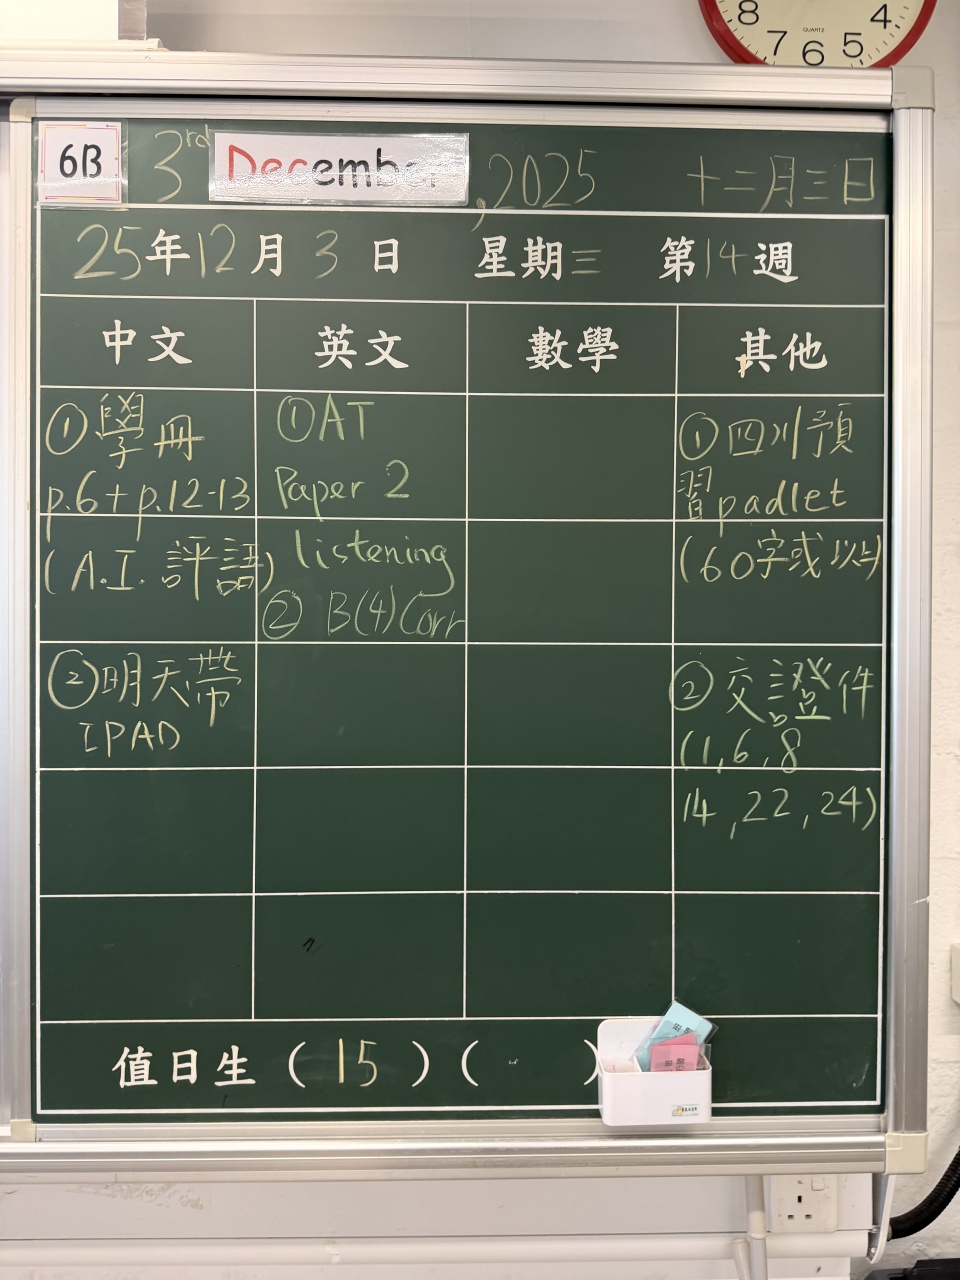 8 4
7 QUARTZ 5
6
6B 3rd December, 2025 十二月三日
25年12月3日 星期三 第14週
中文 英文 數學 其他
①學冊
p.6+p.12-13
(A.I.評語)
②明天帶
IPAD
①AT
Paper 2
listening
②B(4)Corr
①四川預
習padlet
(60字或以上)
②交證件
(1,6,8
14,22,24)
值日生(15)( )